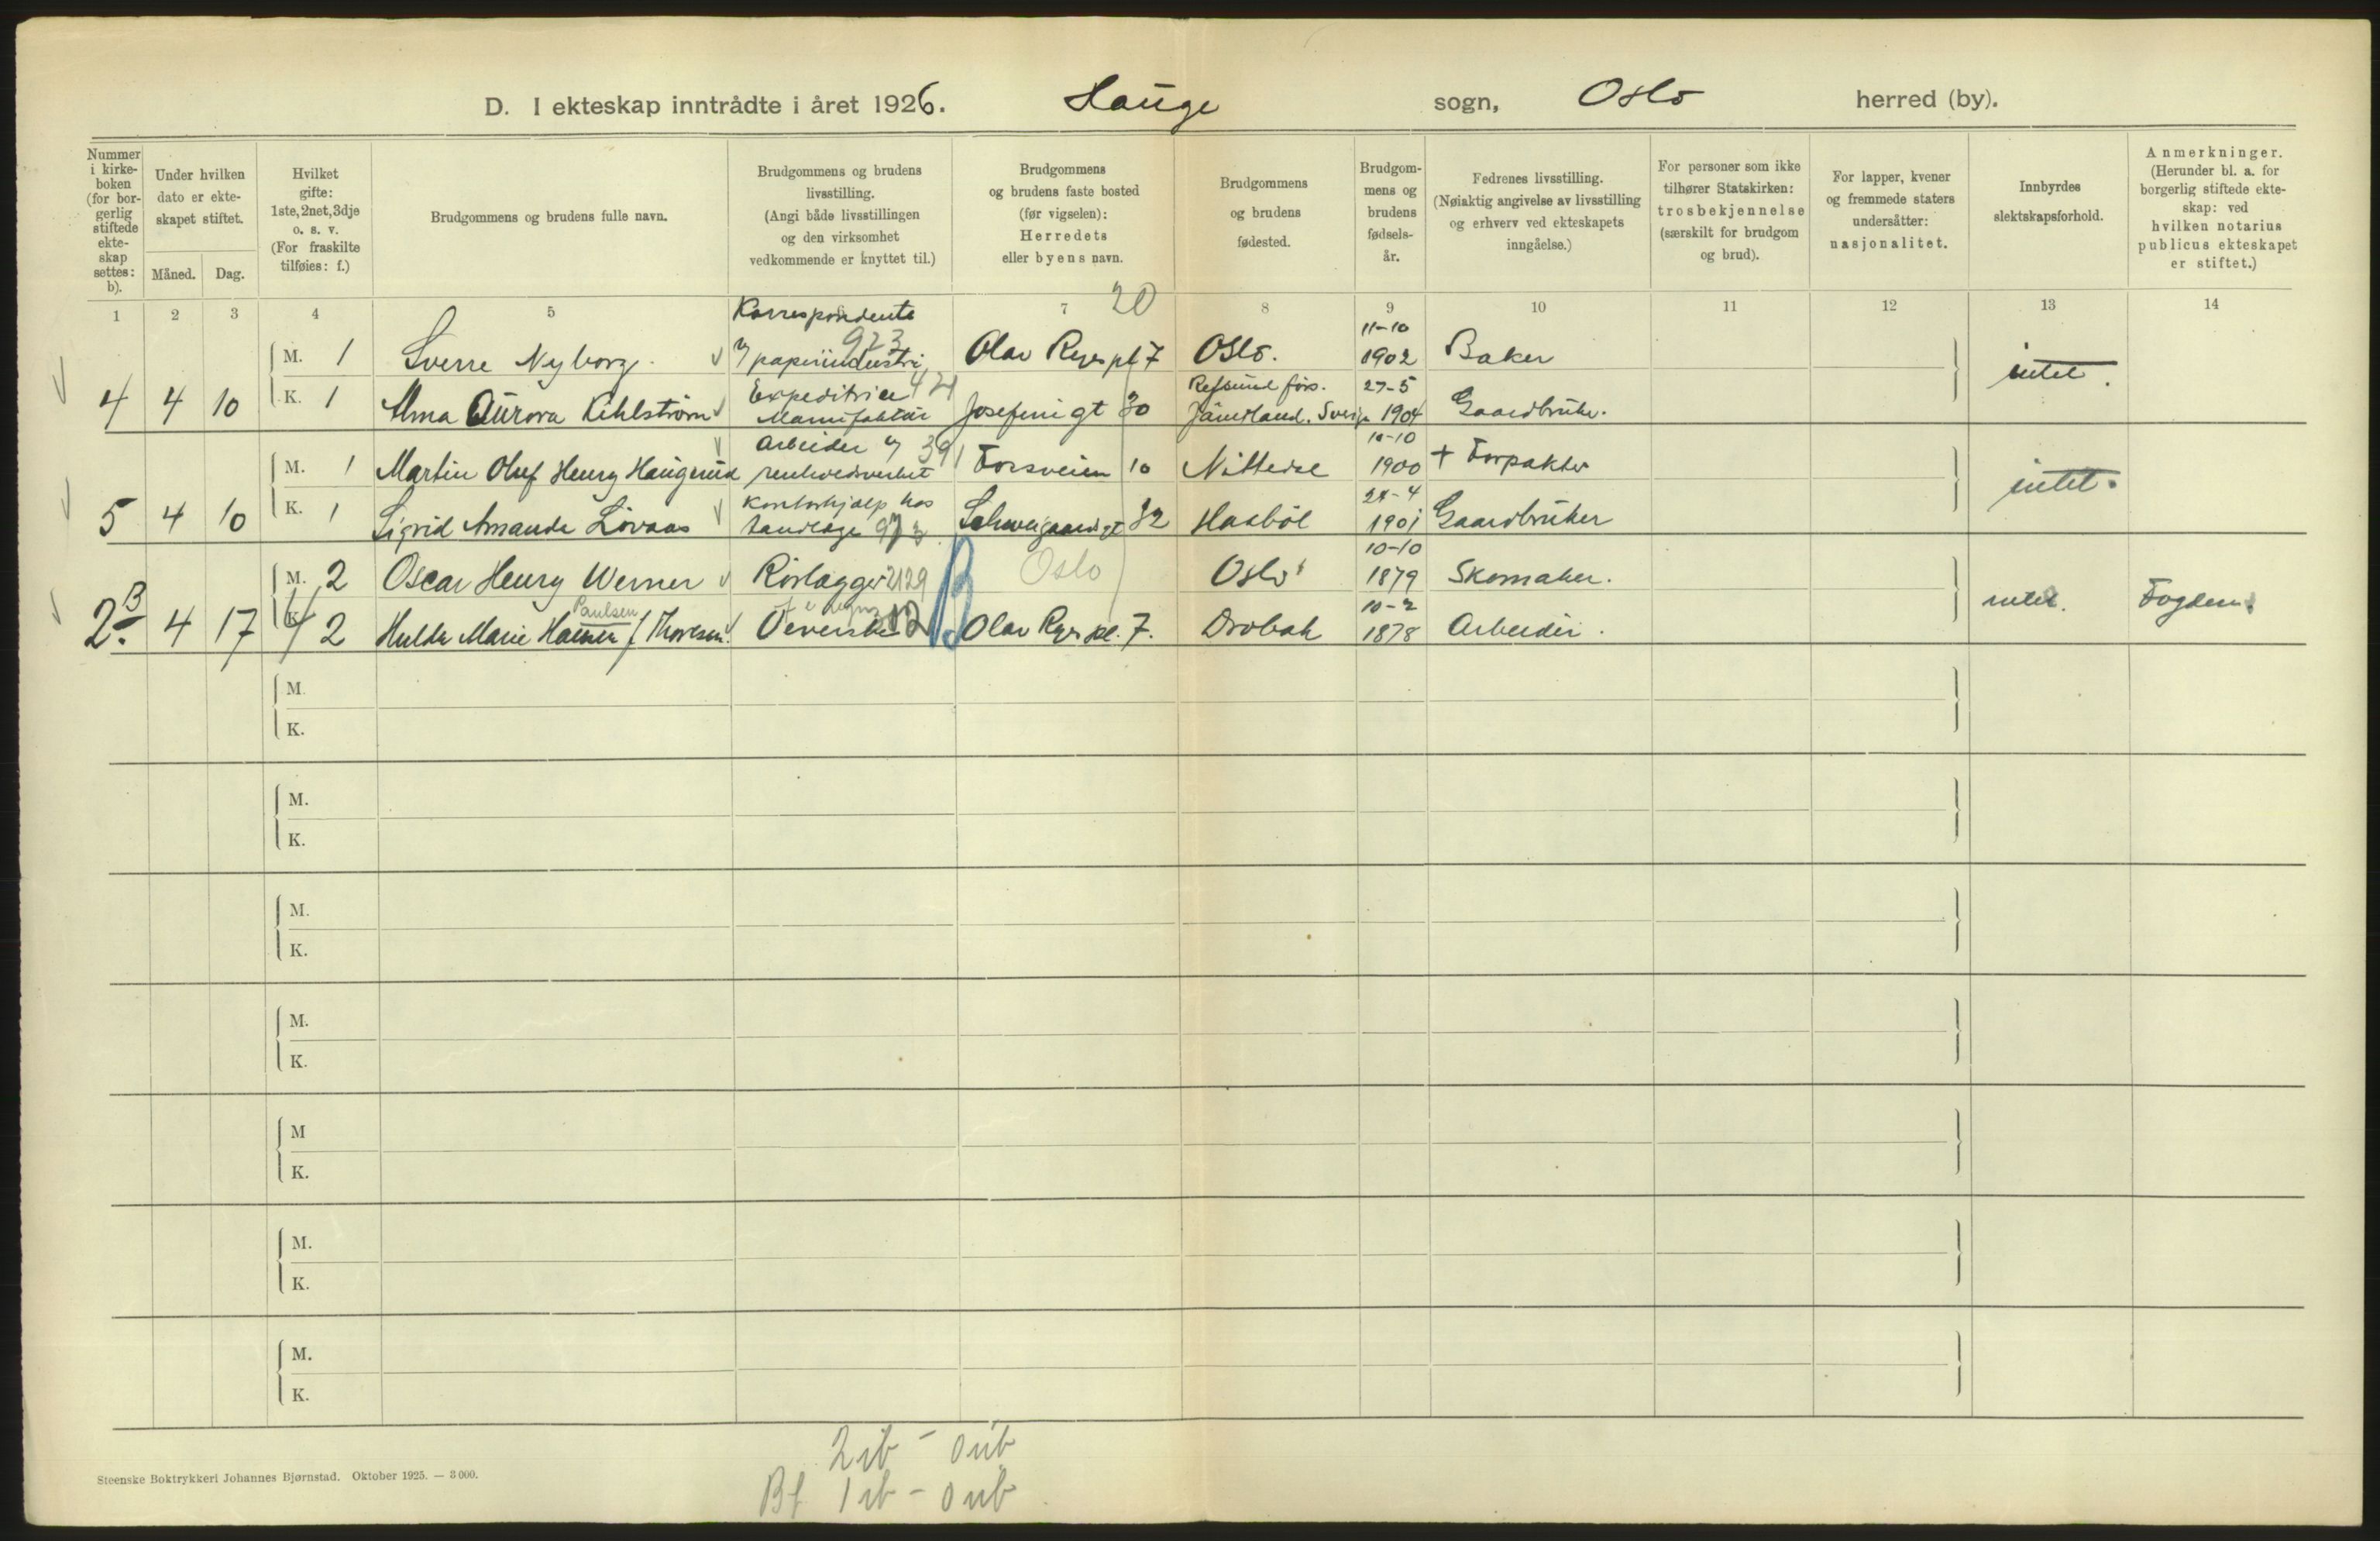 D. I ekteskap inntrådte i året 1926. Hauge sogn, Oslo herred (by).
Nummer i kirkeboken (for borgerlig stiftede ekteskap settes: b).
Under hvilken dato er ekteskapet stiftet.
Måned. Dag.
Hvilket gifte: 1ste, 2net, 3dje o. s. v. (For fraskilte tilføies: f.)
Brudgommens og brudens fulle navn.
Brudgommens og brudens livsstilling. (Angi både livsstillingen og den virksomhet vedkommende er knyttet til.)
Brudgommens og brudens faste bosted (før vigselen): Herredets eller byens navn.
Brudgommens og brudens fødested.
Brudgommens og brudens fødselsår.
Fedrenes livsstilling. (Nøiaktig angivelse av livsstilling og erhverv ved ekteskapets inngåelse.)
For personer som ikke tilhører Statskirken: trosbekjennelse (særskilt for brudgom og brud).
For lapper, kvener og fremmede staters undersåtter: nasjonalitet.
Innbyrdes slektskapsforhold.
Anmerkninger. (Herunder bl. a. for borgerlig stiftede ekteskap: ved hvilken notarius publicus ekteskapet er stiftet.)
1 2 3 4 5 7 20 8 9 10 11 12 13 14
Korrespondent
923
11-10
M. 1 Sverre Nyborg. papirindustri Olav Ryes pl 7 Oslo. 1902 Baker intet.
Expeditrice 421 27-5
4 4 10 K. 1 Alma Aurora Kihlström Manufaktur Josefinigt 30 Jämtland. Sverige 1904 Gaardbruker.
Arbeider 391 10-10
M. 1 Martin Oluf Henry Haugerud renholdsverket Forsveien 10 Nittedal 1900 + Forpakter intet.
Kontorhjælp hos
5 4 10 K. 1 Sigrid Amanda Lövaas tandlæge Schweigaardsgt 32 1901 Gaardbruker
10-10
M. 2 Oscar Henry Werner Rørlægger 2129 Oslo Oslo 1879 Skomaker. intet. Fogden.
Paulsen 10-2
2 B 4 17 K. 2 Hulda Marie f. Thoresen. B Olav Ryes pl. 7. Drøbak 1878 Arbeider.
M.
K.
M.
K.
M.
K.
M.
K.
M
K.
M.
K.
M.
K.
2 ib - 0 uib
Bf 1 ib - 0 uib
Steenske Boktrykkeri Johannes Bjørnstad. Oktober 1925. — 3 000.